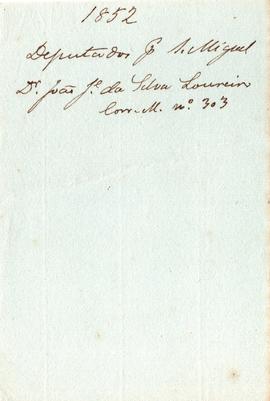 1852
Deputados p S. Miguel
Dr. João Je. da Silva Loureiro
Corr. M. nº. 303